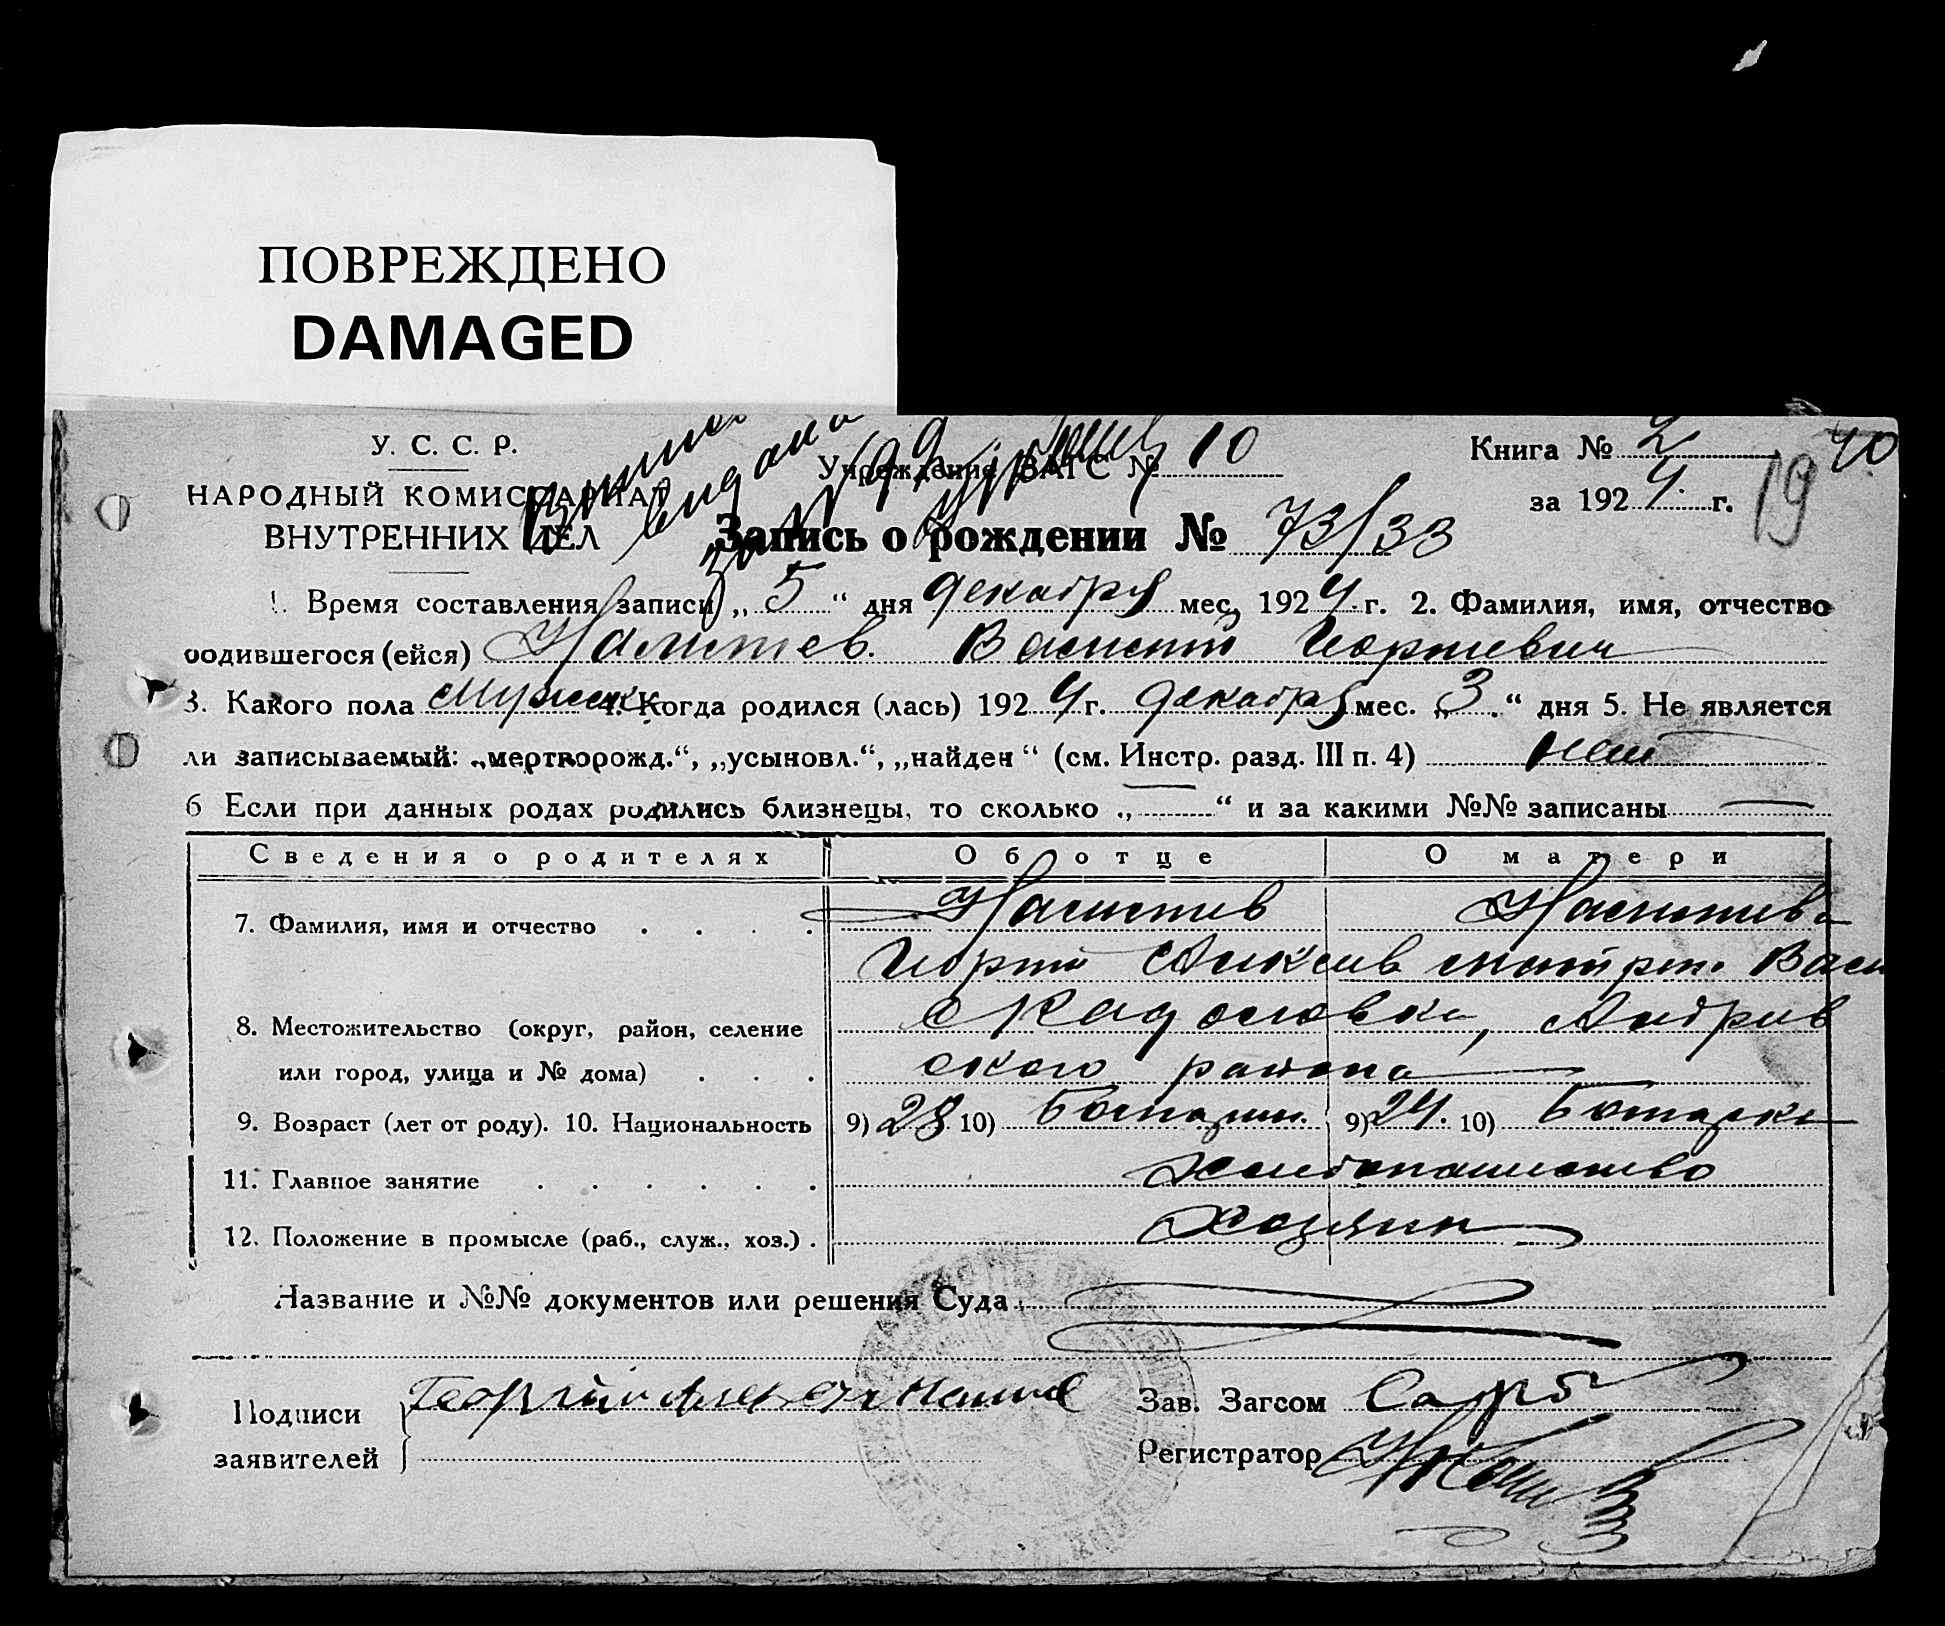 ПОВРЕЖДЕНО
DAMAGED
У. С. С. Р.
НАРОДНЫЙ КОМИССАРИАТ
ВНУТРЕННИХ ДЕЛ
выдана
Учреждение ЗАГС № 10
Книга № 2
за 1924 г.
19
40
Запись о рождении № 73/33
1. Время составления записи „5“ дня декабря мес. 1924 г. 2. Фамилия, имя, отчество
родившегося (ейся) Василий Георгиевич
3. Какого пола мужск. 4. Когда родился (лась) 1924 г. декабря мес. „3.“ дня 5. Не является
ли записываемый: „мертворожд.“, „усыновл.“, „найден“ (см. Инстр. разд. III п. 4) нет
6 Если при данных родах родились близнецы, то сколько „—“ и за какими №№ записаны —
Сведения о родителях Об отце О матери
7. Фамилия, имя и отчество
Георгий Алексеев Васи
8. Местожительство (округ, район, селение
или город, улица и № дома) ского района
9. Возраст (лет от роду). 10. Национальность 9) 28 10) Болгарин. 9) 24. 10) Болгарка
11. Главное занятие хлебопашество
12. Положение в промысле (раб., служ., хоз.) хозяин
Название и №№ документов или решения Суда
Подписи
заявителей Георгий
Зав. Загсом
Регистратор